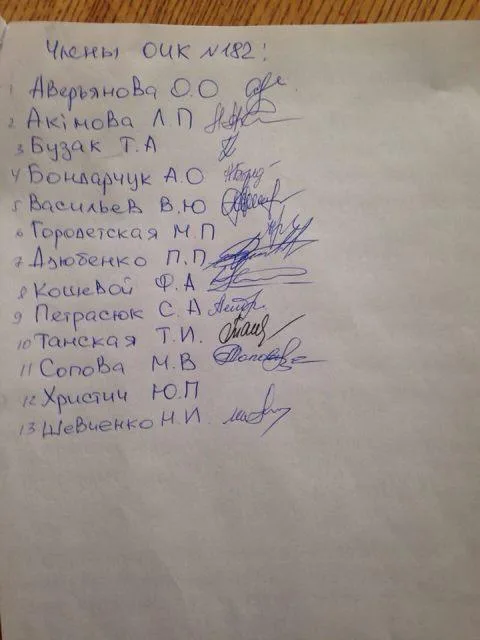 Члены ОИК №182:
1 Аверьянова О.О
2 Акімова Л.П
3 Бузак Т.А
4 Бондарчук А.О
5 Васильев В.Ю
6 Городетская М.П
7 Дзюбенко П.П
8 Кошевой Ф.А
9 Петрасюк С.А
10 Танская Т.И.
11 Сопова М.В
12 Христич Ю.П
13 Шевченко Н.И.